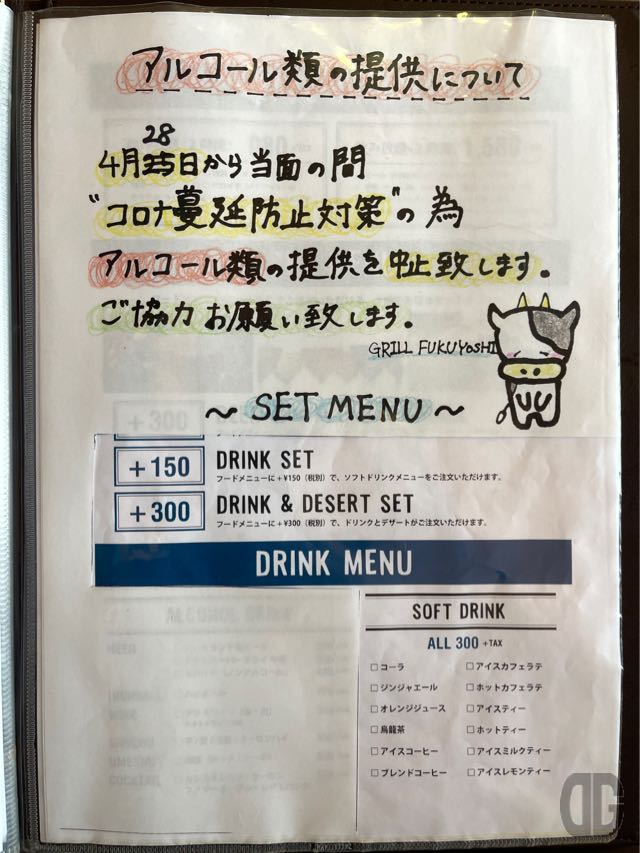 アルコール類の提供について
28
4月25日から当面の間
"コロナ蔓延防止対策"の為
アルコール類の提供を中止致します。
ご協力お願い致します。
GRILL FUKUYOSHI
～ SET MENU ～
+300
+150 DRINK SET
フードメニューに+¥150（税別）で、ソフトドリンクメニューをご注文いただけます。
+300 DRINK & DESERT SET
フードメニューに+¥300（税別）で、ドリンクとデザートがご注文いただけます。
DRINK MENU
SOFT DRINK
ALL 300 +TAX
□コーラ
□ジンジャエール
□オレンジジュース
□烏龍茶
□アイスコーヒー
□ブレンドコーヒー
□アイスカフェラテ
□ホットカフェラテ
□アイスティー
□ホットティー
□アイスミルクティー
□アイスレモンティー
DG